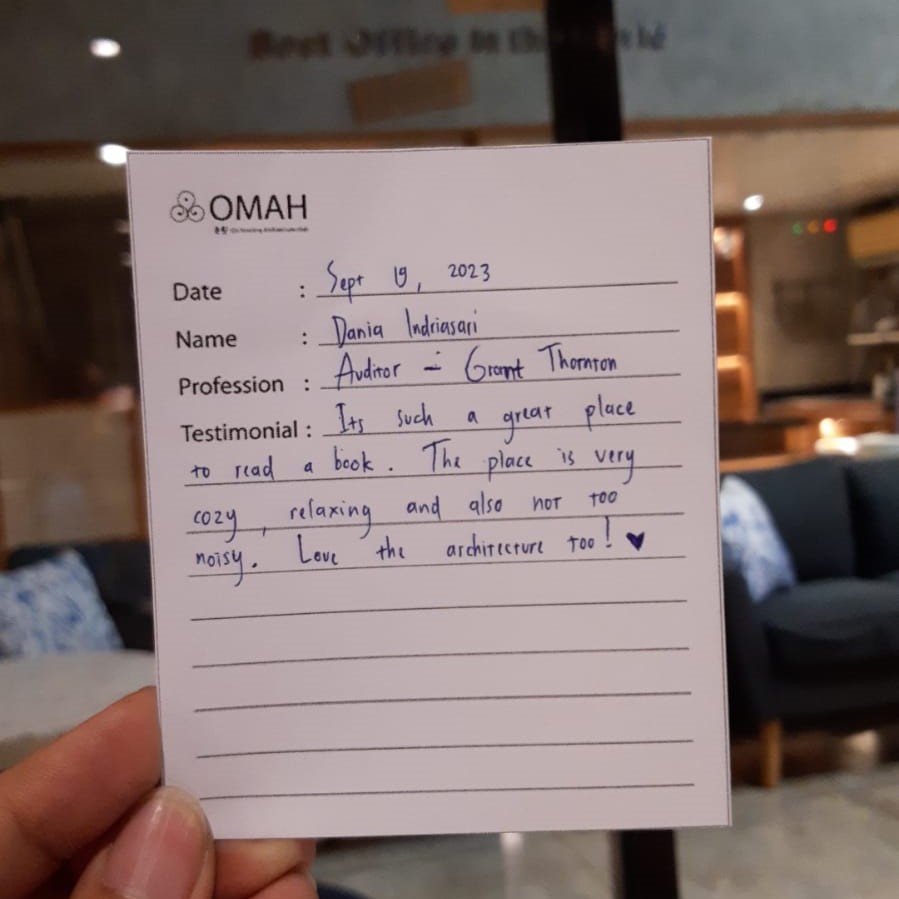 Best Office in the
OMAH
Date : Sept 19, 2023
Name : Dania Indriasari
Profession : Auditor - Grant Thornton
Testimonial : Its such a great place
to read a book. The place is very
cozy, relaxing and also not too
noisy. Love the architecture too! ♥